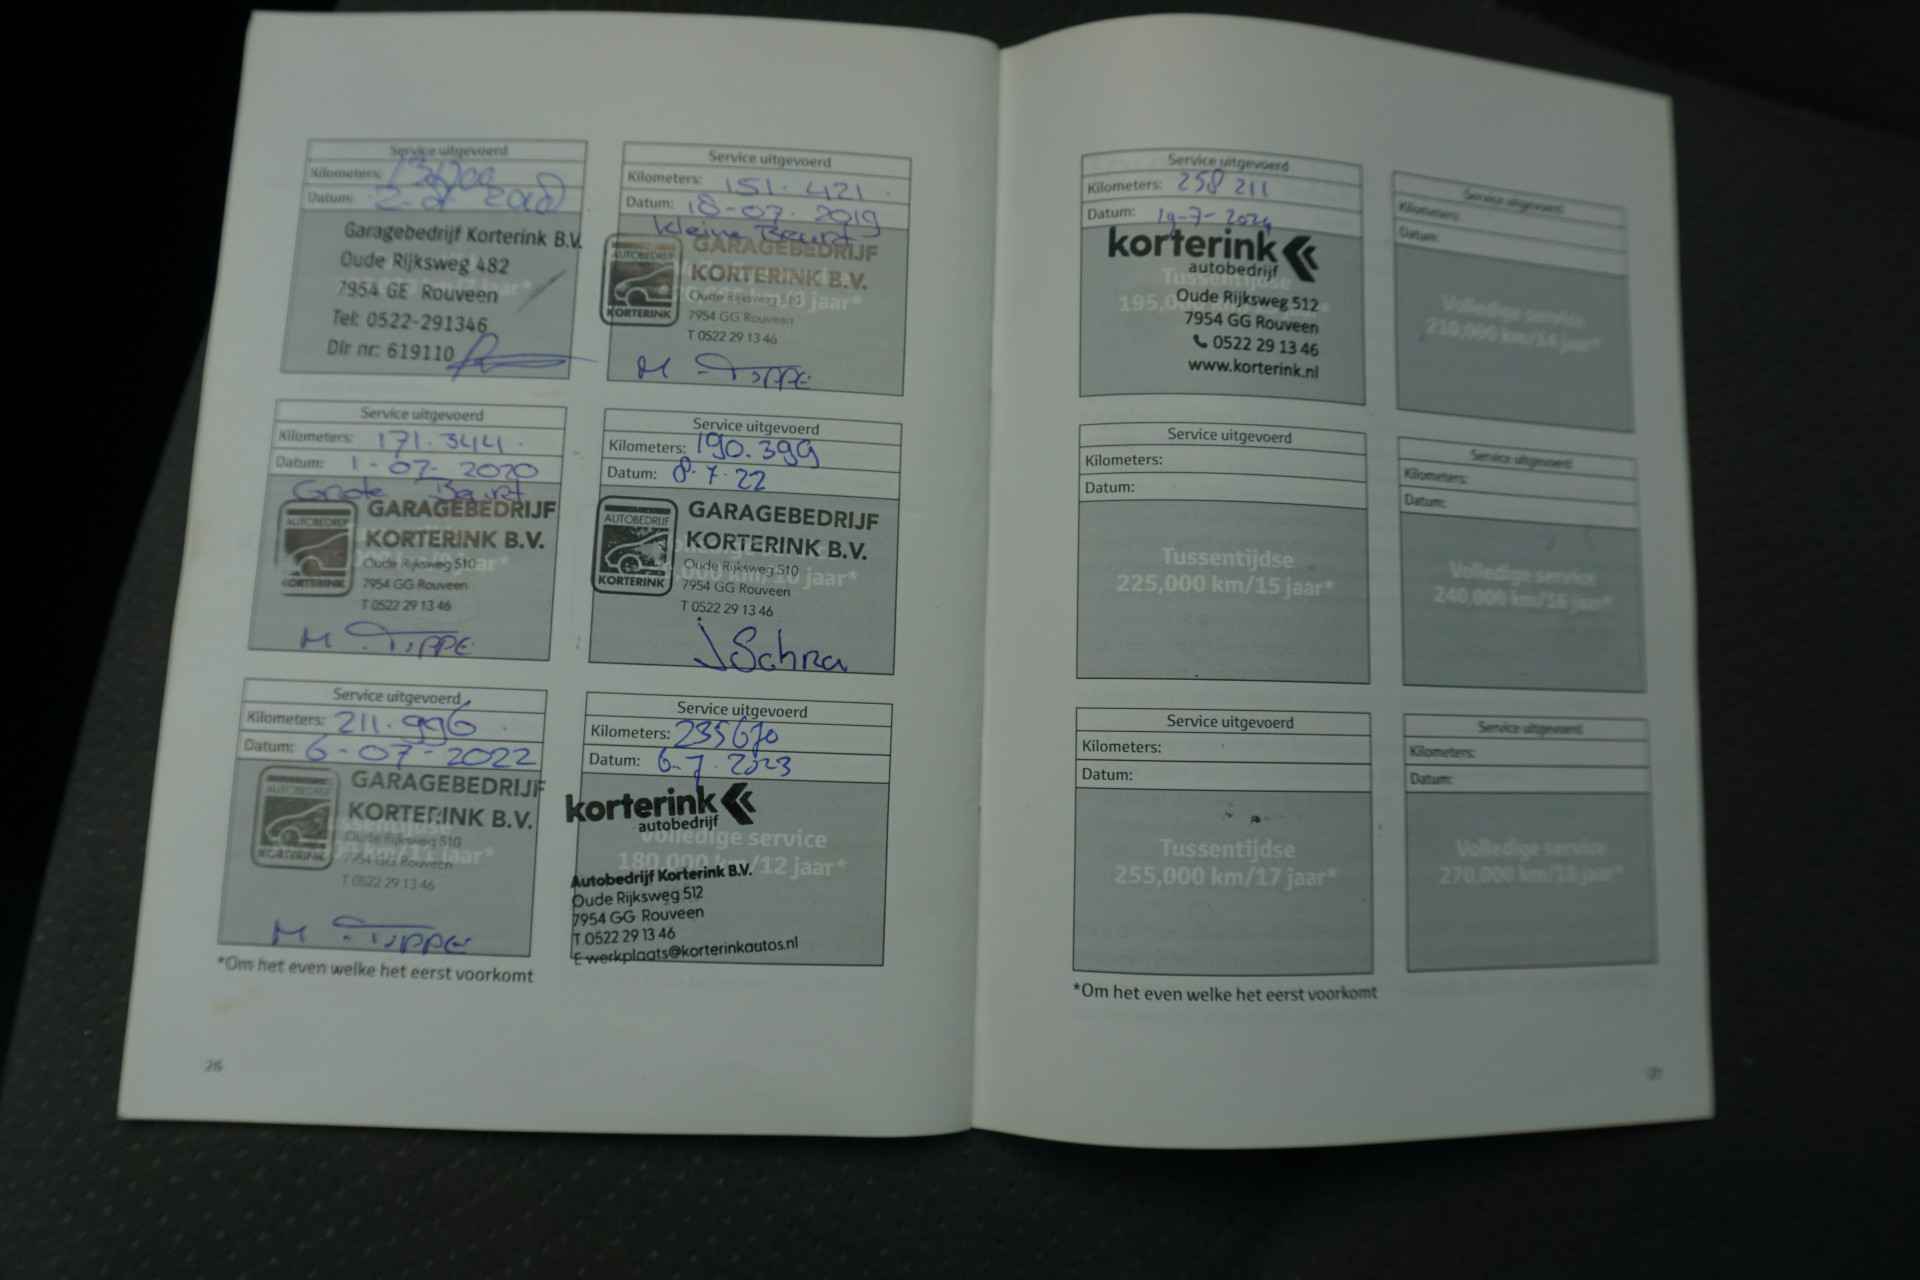 Service uitgevoerd
Kilometers:
Datum:
Garagebedrijf Korterink B.V.
Oude Rijksweg 482
7954 GE Rouveen
Tel: 0522-291346
Dlr nr: 619110
Service uitgevoerd
Kilometers: 151.421.
Datum: 18-07-2019
Kleine Beurt
AUTOBEDRIJF
KORTERINK
GARAGEBEDRIJF
KORTERINK B.V.
Oude Rijksweg 510
7954 GG Rouveen
T 0522 29 13 46
M TIPPE
Service uitgevoerd
Kilometers: 171.344.
Datum: 1-07-2020
Grote Beurt
AUTOBEDRIJF
KORTERINK
GARAGEBEDRIJF
KORTERINK B.V.
Oude Rijksweg 510
7954 GG Rouveen
T 0522 29 13 46
M TIPPE
Service uitgevoerd
Kilometers: 190.399
Datum: 8-7-22
AUTOBEDRIJF
KORTERINK
GARAGEBEDRIJF
KORTERINK B.V.
Oude Rijksweg 510
7954 GG Rouveen
T 0522 29 13 46
J Schra
Service uitgevoerd
Kilometers: 211.996.
Datum: 6-07-2022
AUTOBEDRIJF
KORTERINK
GARAGEBEDRIJF
KORTERINK B.V.
Oude Rijksweg 510
7954 GG Rouveen
T 0522 29 13 46
M TIPPE
Service uitgevoerd
Kilometers: 235670
Datum: 6-7-2023
korterink
autobedrijf
Volledige service
180,000 km/12 jaar*
Autobedrijf Korterink B.V.
Oude Rijksweg 512
7954 GG Rouveen
T 0522 29 13 46
E werkplaats@korterinkautos.nl
*Om het even welke het eerst voorkomt
26
Service uitgevoerd
Kilometers: 258 211
Datum: 19-7-2024
korterink
autobedrijf
Tussentijdse
195,000
Oude Rijksweg 512
7954 GG Rouveen
0522 29 13 46
www.korterink.nl
Service uitgevoerd
Kilometers:
Datum:
Volledige service
210,000 km/14 jaar*
Service uitgevoerd
Kilometers:
Datum:
Tussentijdse
225,000 km/15 jaar*
Service uitgevoerd
Kilometers:
Datum:
Volledige service
240,000 km/16 jaar*
Service uitgevoerd
Kilometers:
Datum:
Tussentijdse
255,000 km/17 jaar*
Service uitgevoerd
Kilometers:
Datum:
Volledige service
270,000 km/18 jaar*
*Om het even welke het eerst voorkomt